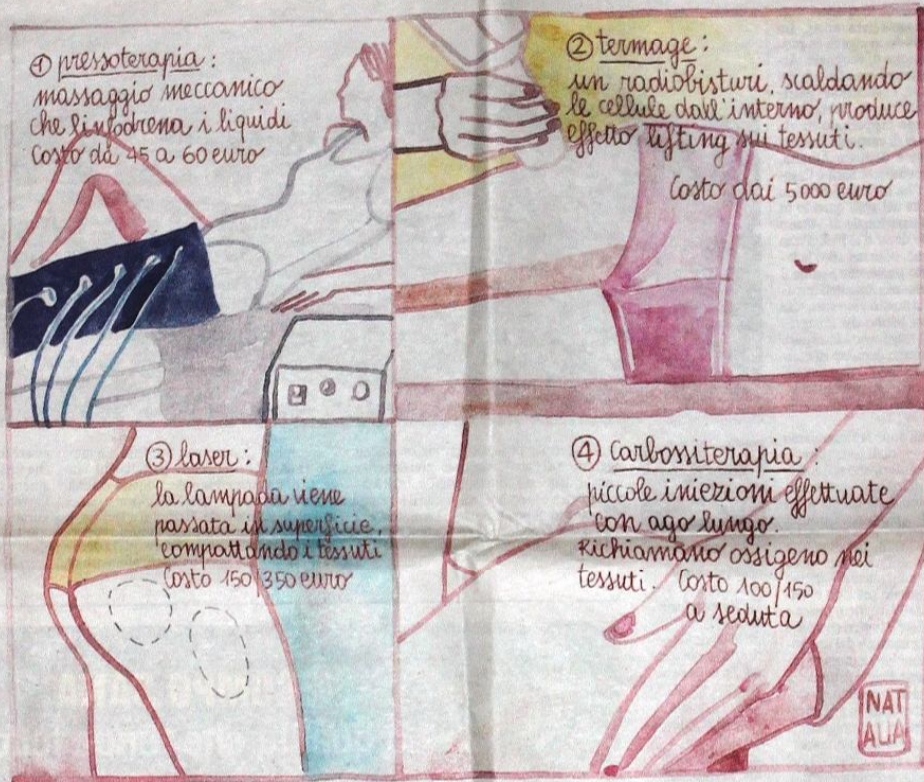 ① pressoterapia:
massaggio meccanico
che linfodrena i liquidi
Costo da 45 a 60 euro
② termage:
un radiobisturi, scaldando
le cellule dall'interno, produce
effetto lifting sui tessuti.
Costo dai 5000 euro
③ laser:
la lampada viene
passata in superficie,
compattando i tessuti
Costo 150/350 euro
④ Carbossiterapia:
piccole iniezioni effettuate
con ago lungo.
Richiamano ossigeno nei
tessuti. Costo 100/150
a seduta
NAT
ALIA